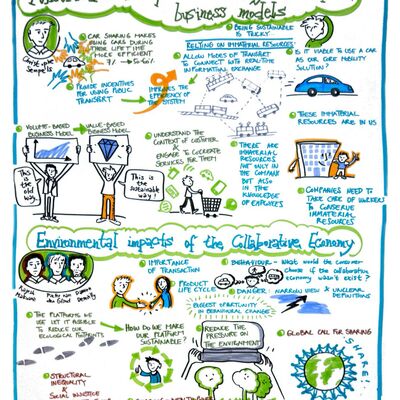 business models
Christophe
Sempels
CAR SHARING MAKES
USING CARS DURING
THEIR LIFE TIME
MORE EFFICIENT
PROVIDE INCENTIVES
FOR USING PUBLIC
TRANSPORT
IMPROVES THE
EFFICIENCY OF
THE SYSTEM
BEING SUSTAINABLE
IS TRICKY
RELYING ON IMMATERIAL RESOURCES
ALLOW MODES OF TRANSPORT
TO CONNECT WITH REAL-TIME
INFORMATION EXCHANGE
IS IT VIABLE TO USE A CAR
AS OUR CORE MOBILITY
SOLUTION?
THESE IMMATERIAL
RESOURCES ARE IN US
VOLUME-BASED
BUSINESS MODEL
VALUE-BASED
BUSINESS MODEL
This is
the old
way.
This is
the
sustainable
way!
UNDERSTAND THE
CONTEXT OF CUSTOMER
&
ENGAGE TO COCREATE
SERVICES FOR THEM
THERE ARE
IMMATERIAL
RESOURCES
NOT ONLY IN
THE COMPANY
BUT ALSO
IN THE
KNOWLEDGE
OF EMPLOYEES
COMPANIES NEED TO
TAKE CARE OF WORKERS
TO CONSERVE
IMMATERIAL
RESOURCES
Environmental impacts of the Collaborative Economy
IMPORTANCE
OF TRANSACTION
BEHAVIOUR - What would the consumer
choose if the collaborative
economy wasn't exist?
PRODUCT
LIFE CYCLE
DANGER: NARROW VIEW & UNCLEAR
DEFINITIONS
BIGGEST OPPORTUNITY IN
BEHAVIOURAL CHANGE
THE PLATFORMS WE
USE LET IT POSSIBLE
TO REDUCE OUR
ECOLOGICAL FOOTPRINTS
HOW DO WE MAKE
OUR PLATFORM
SUSTAINABLE?
REDUCE THE
PRESSURE ON
THE ENVIRONMENT
GLOBAL CALL FOR SHARING
SHARE!
STRUCTURAL
INEQUALITY
&
SOCIAL INJUSTICE